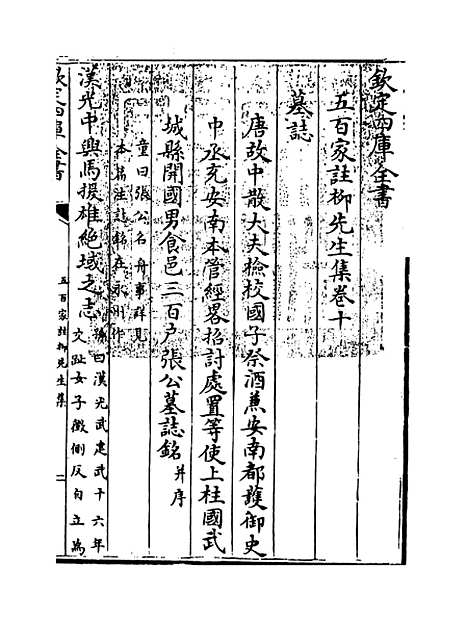 欽定四庫全書
五百家註柳先生集卷十
墓誌
唐故中散大夫檢校國子祭酒兼安南都護御史
中丞充安南本管經畧招討處置等使上柱國武
城縣開國男食邑三百户張公墓誌銘并序
童曰張公名舟事詳見
本篇注誌銘在永州作
漢光中興馬援雄絶域之志
孫曰漢光武建武十六年
交趾女子徵側反自立為
五百家註柳先生集